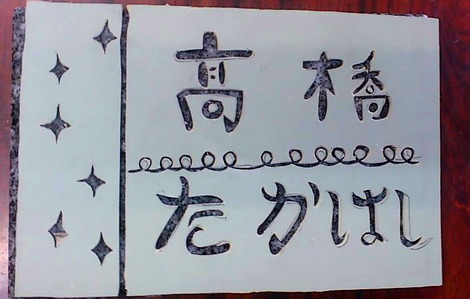 高橋
たかはし